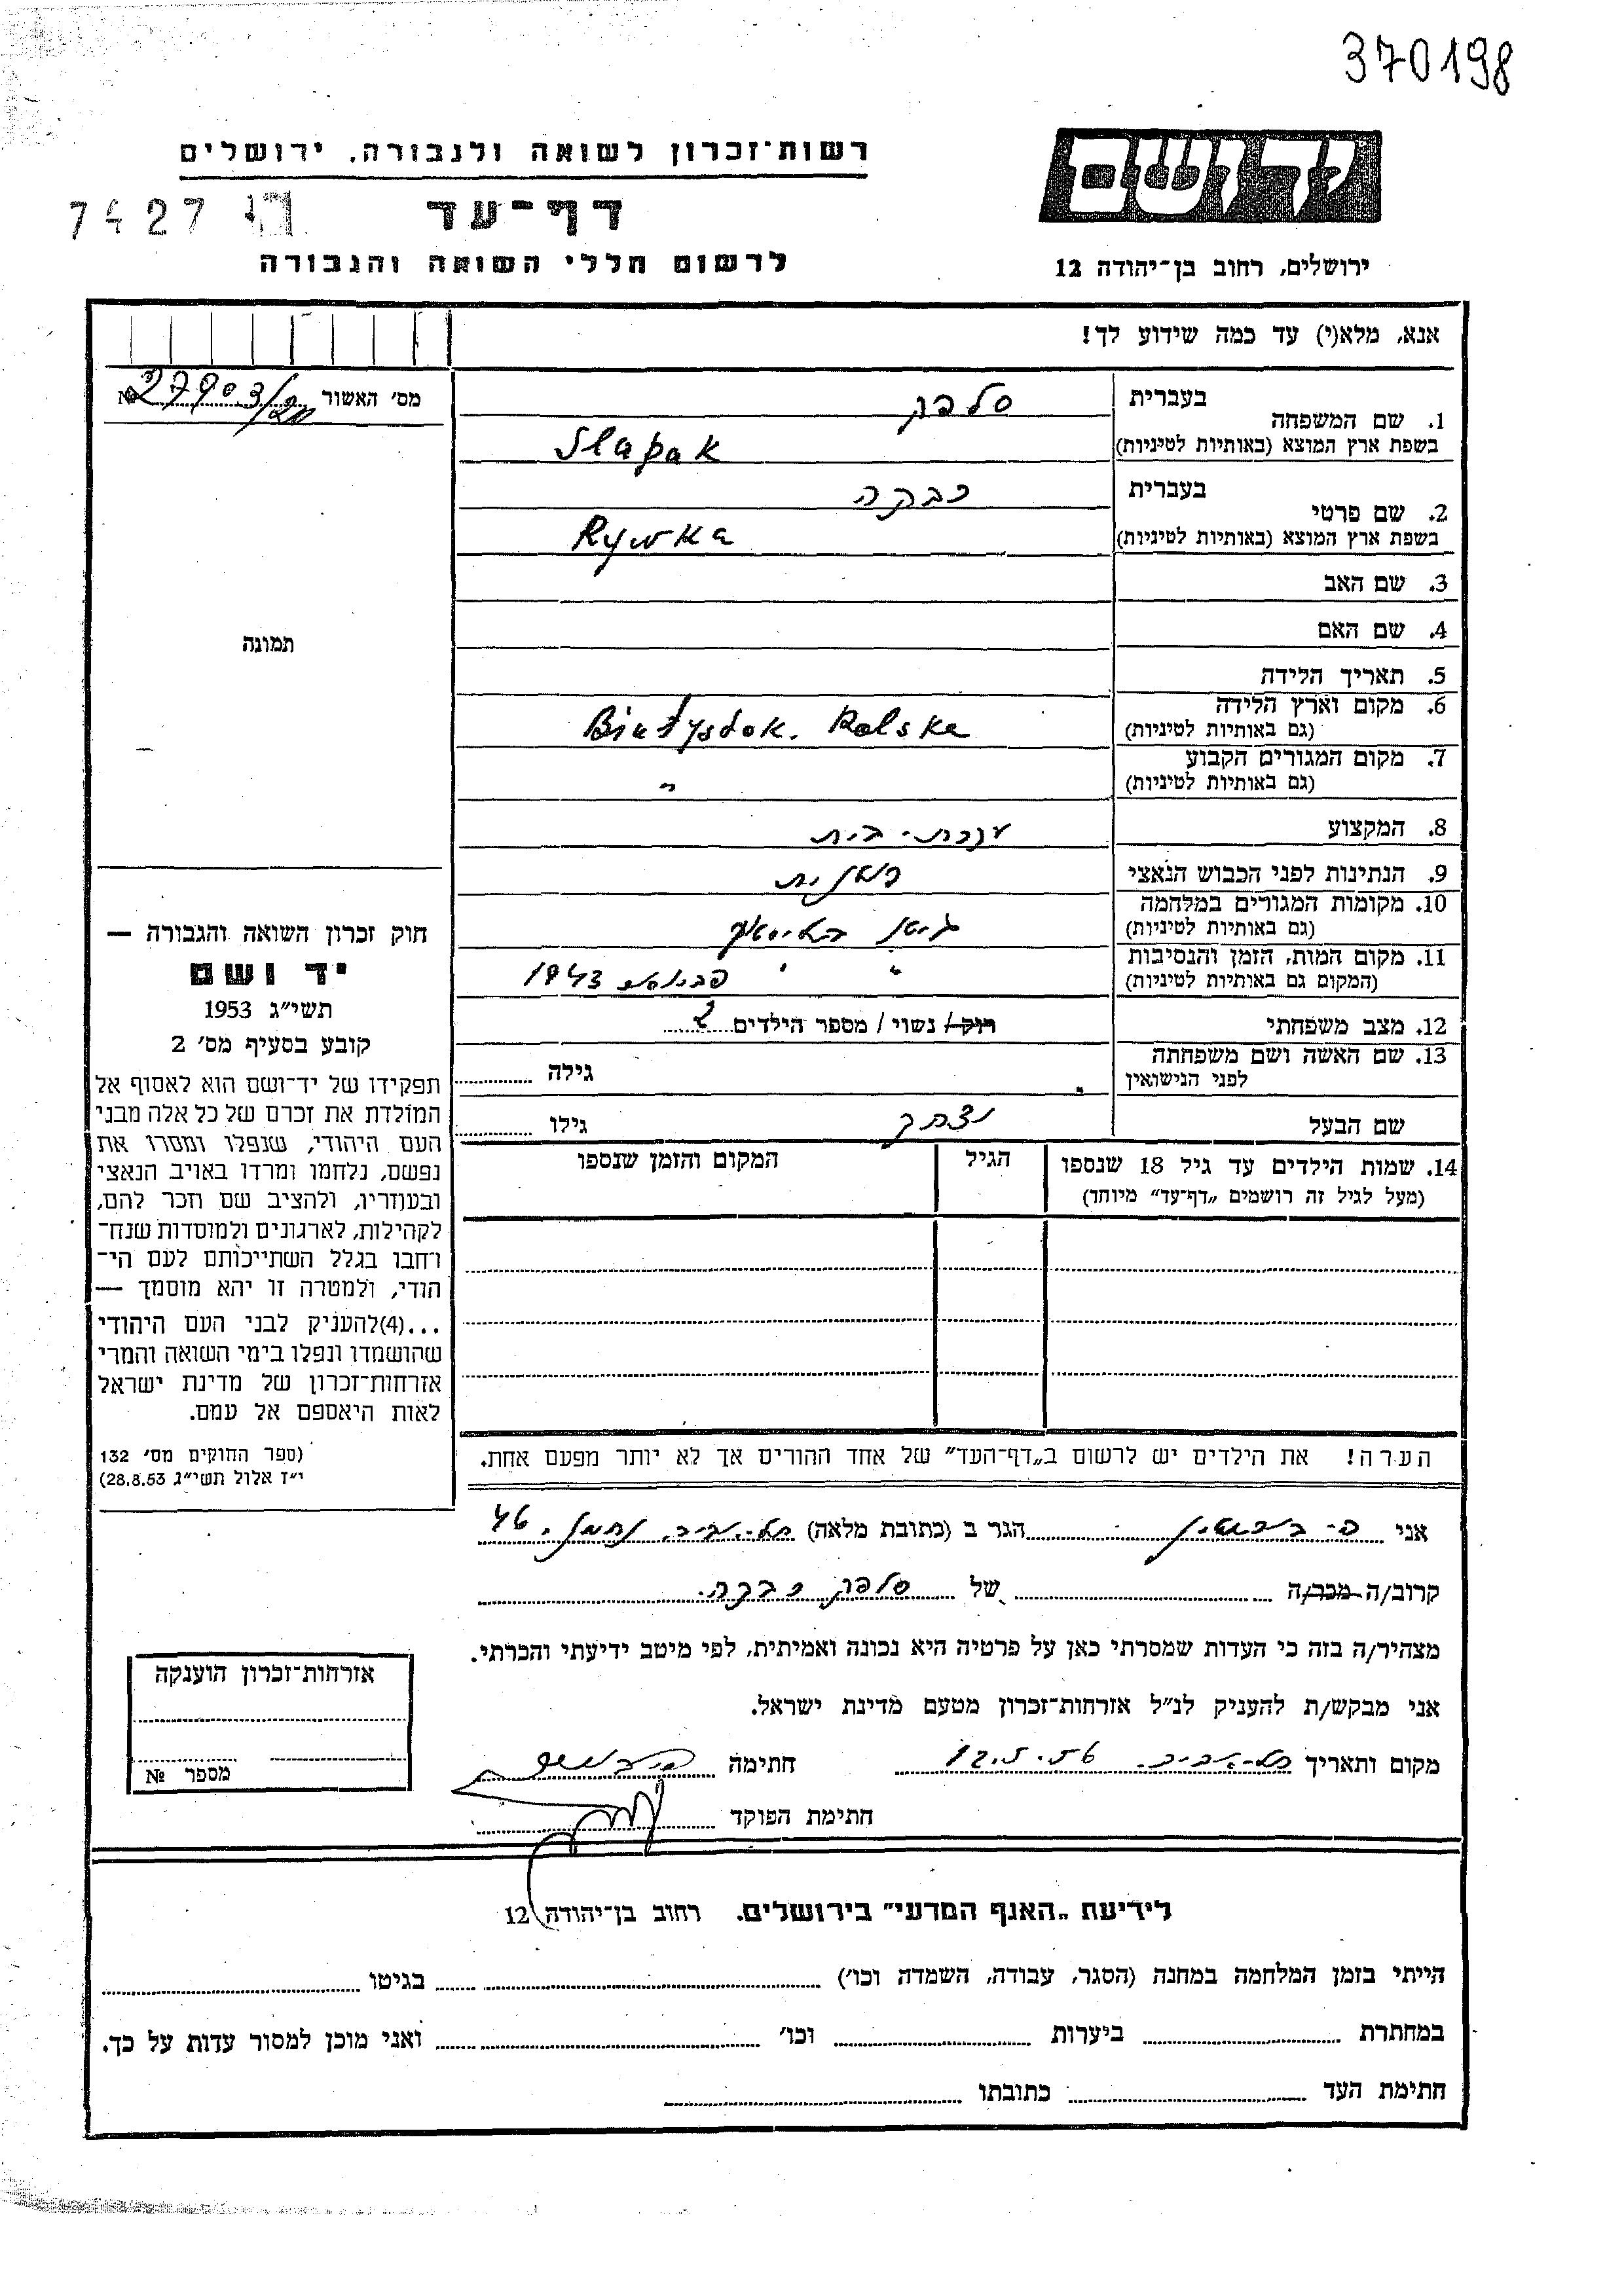 370198
ידושם
רשות־זכרון לשואה ולגבורה. ירושלים
דף־עד
7427
ירושלים, רחוב בן־יהודה 12
לרשום חללי השואה והגבורה
אנא, מלא(י) עד כמה שידוע לך!
מס׳ האשור № 27903/
1. שם המשפחה
בעברית סלפק
בשפת ארץ המוצא (באותיות לטיניות) Slapak
2. שם פרטי
בעברית רבקה
בשפת ארץ המוצא (באותיות לטיניות) Rywka
3. שם האב
4. שם האם
תמונה
5. תאריך הלידה
6. מקום וארץ הלידה
(גם באותיות לטיניות) Białystok. Polska
7. מקום המגורים הקבוע
(גם באותיות לטיניות) "
8. המקצוע עקרת-בית
9. הנתינות לפני הכבוש הנאצי פולנית
10. מקומות המגורים במלחמה
(גם באותיות לטיניות) גיטו
11. מקום המות, הזמן והנסיבות
(המקום גם באותיות לטיניות) " " 1943
12. מצב משפחתי רוק/ נשוי/ מספר הילדים 2
13. שם האשה ושם משפחתה
לפני הנישואין גילה
שם הבעל יצחק גילו
14. שמות הילדים עד גיל 18 שנספו
(מעל לגיל זה רושמים „דף־עד” מיוחד)
הגיל
המקום והזמן שנספו
חוק זכרון השואה והגבורה —
יד ושם
תשי״ג 1953
קובע בסעיף מס׳ 2
תפקידו של יד־ושם הוא לאסוף אל
המולדת את זכרם של כל אלה מבני
העם היהודי, שנפלו ומסרו את
נפשם, נלחמו ומרדו באויב הנאצי
ובעוזריו, ולהציב שם וזכר להם,
לקהילות, לארגונים ולמוסדות שנח־
רחבו בגלל השתייכותם לעם הי־
הודי, ולמטרה זו יהא מוסמך —
...(4)להעניק לבני העם היהודי
שהושמדו ונפלו בימי השואה והמרי
אזרחות־זכרון של מדינת ישראל
לאות היאספם אל עמם.
(ספר החוקים מס׳ 132
י״ז אלול תשי״ג 28.8.53)
הערה! את הילדים יש לרשום ב„דף־העד” של אחד ההורים אך לא יותר מפעם אחת.
אני הגר ב (כתובת מלאה) תל-אביב, 46
קרוב/ה מכר/ה של סלפק רבקה.
מצהיר/ה בזה כי העדות שמסרתי כאן על פרטיה היא נכונה ואמיתית, לפי מיטב ידיעתי והכרתי.
אני מבקש/ת להעניק לנ״ל אזרחות־זכרון מטעם מדינת ישראל.
מקום ותאריך תל-אביב. 12.5.56 חתימה
חתימת הפוקד
אזרחות־זכרון הוענקה
מספר №
לידיעת „האגף המדעי” בירושלים. רחוב בן־יהודה 12
הייתי בזמן המלחמה במחנה (הסגר, עבודה, השמדה וכו׳) בגיטו
במחתרת ביערות וכו׳ ואני מוכן למסור עדות על כך.
חתימת העד כתובתו